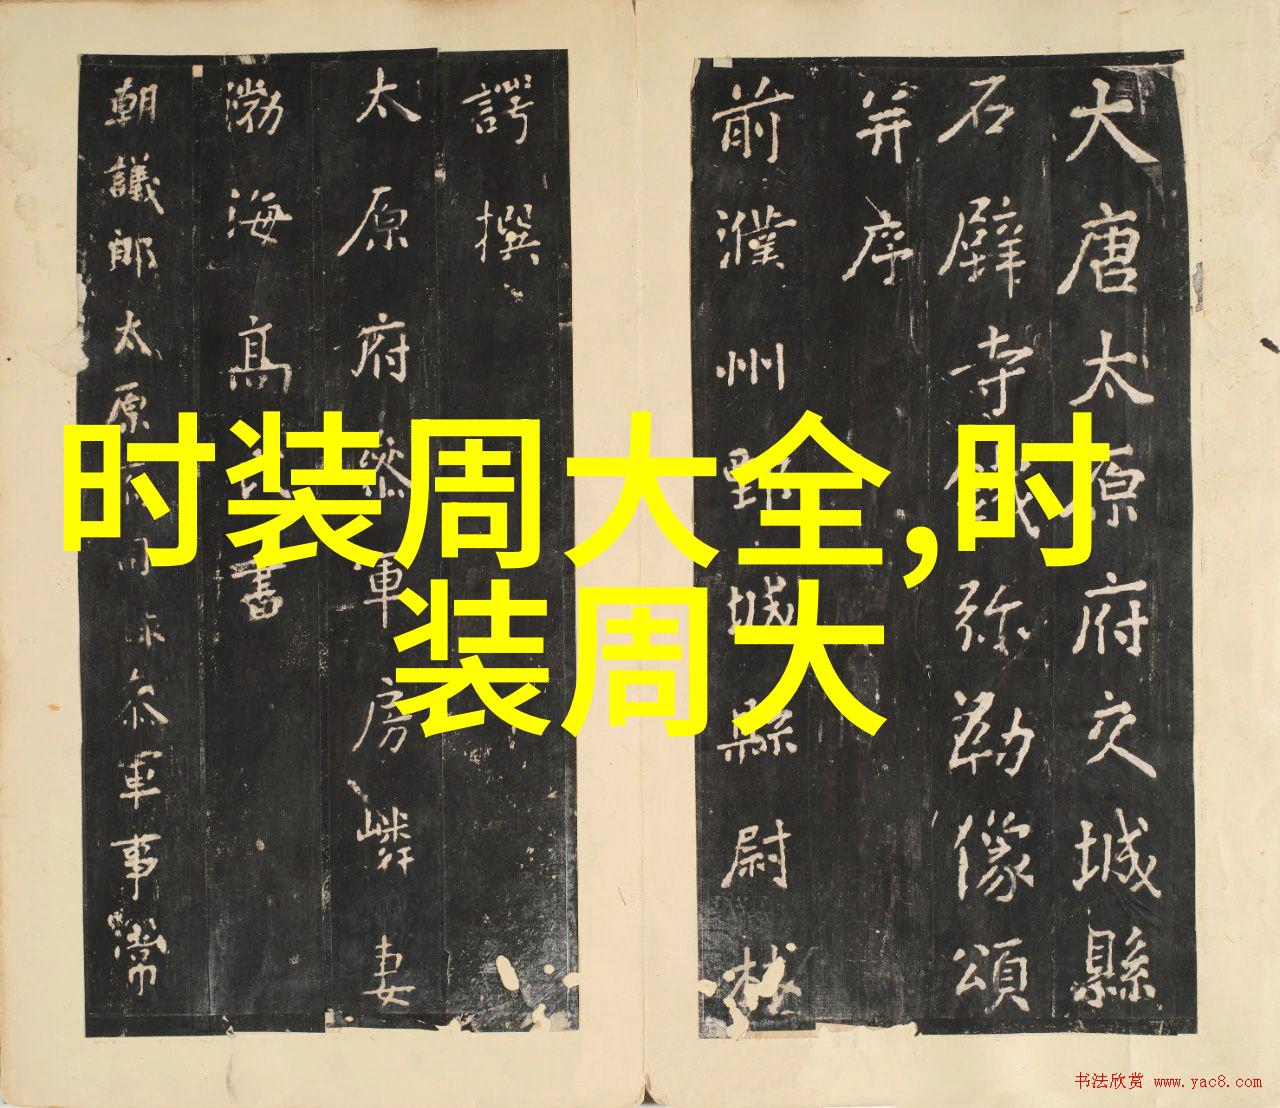 大唐太原府交城縣
石壁寺鐵弥勒像頌
并序
前濮州鄄城縣尉林
諤撰
太原府叅軍房嶙妻
渤海高氏書
朝議郎太原府司叅軍事常
时装周大全,时
装周大
书法欣赏 www.yac8.com